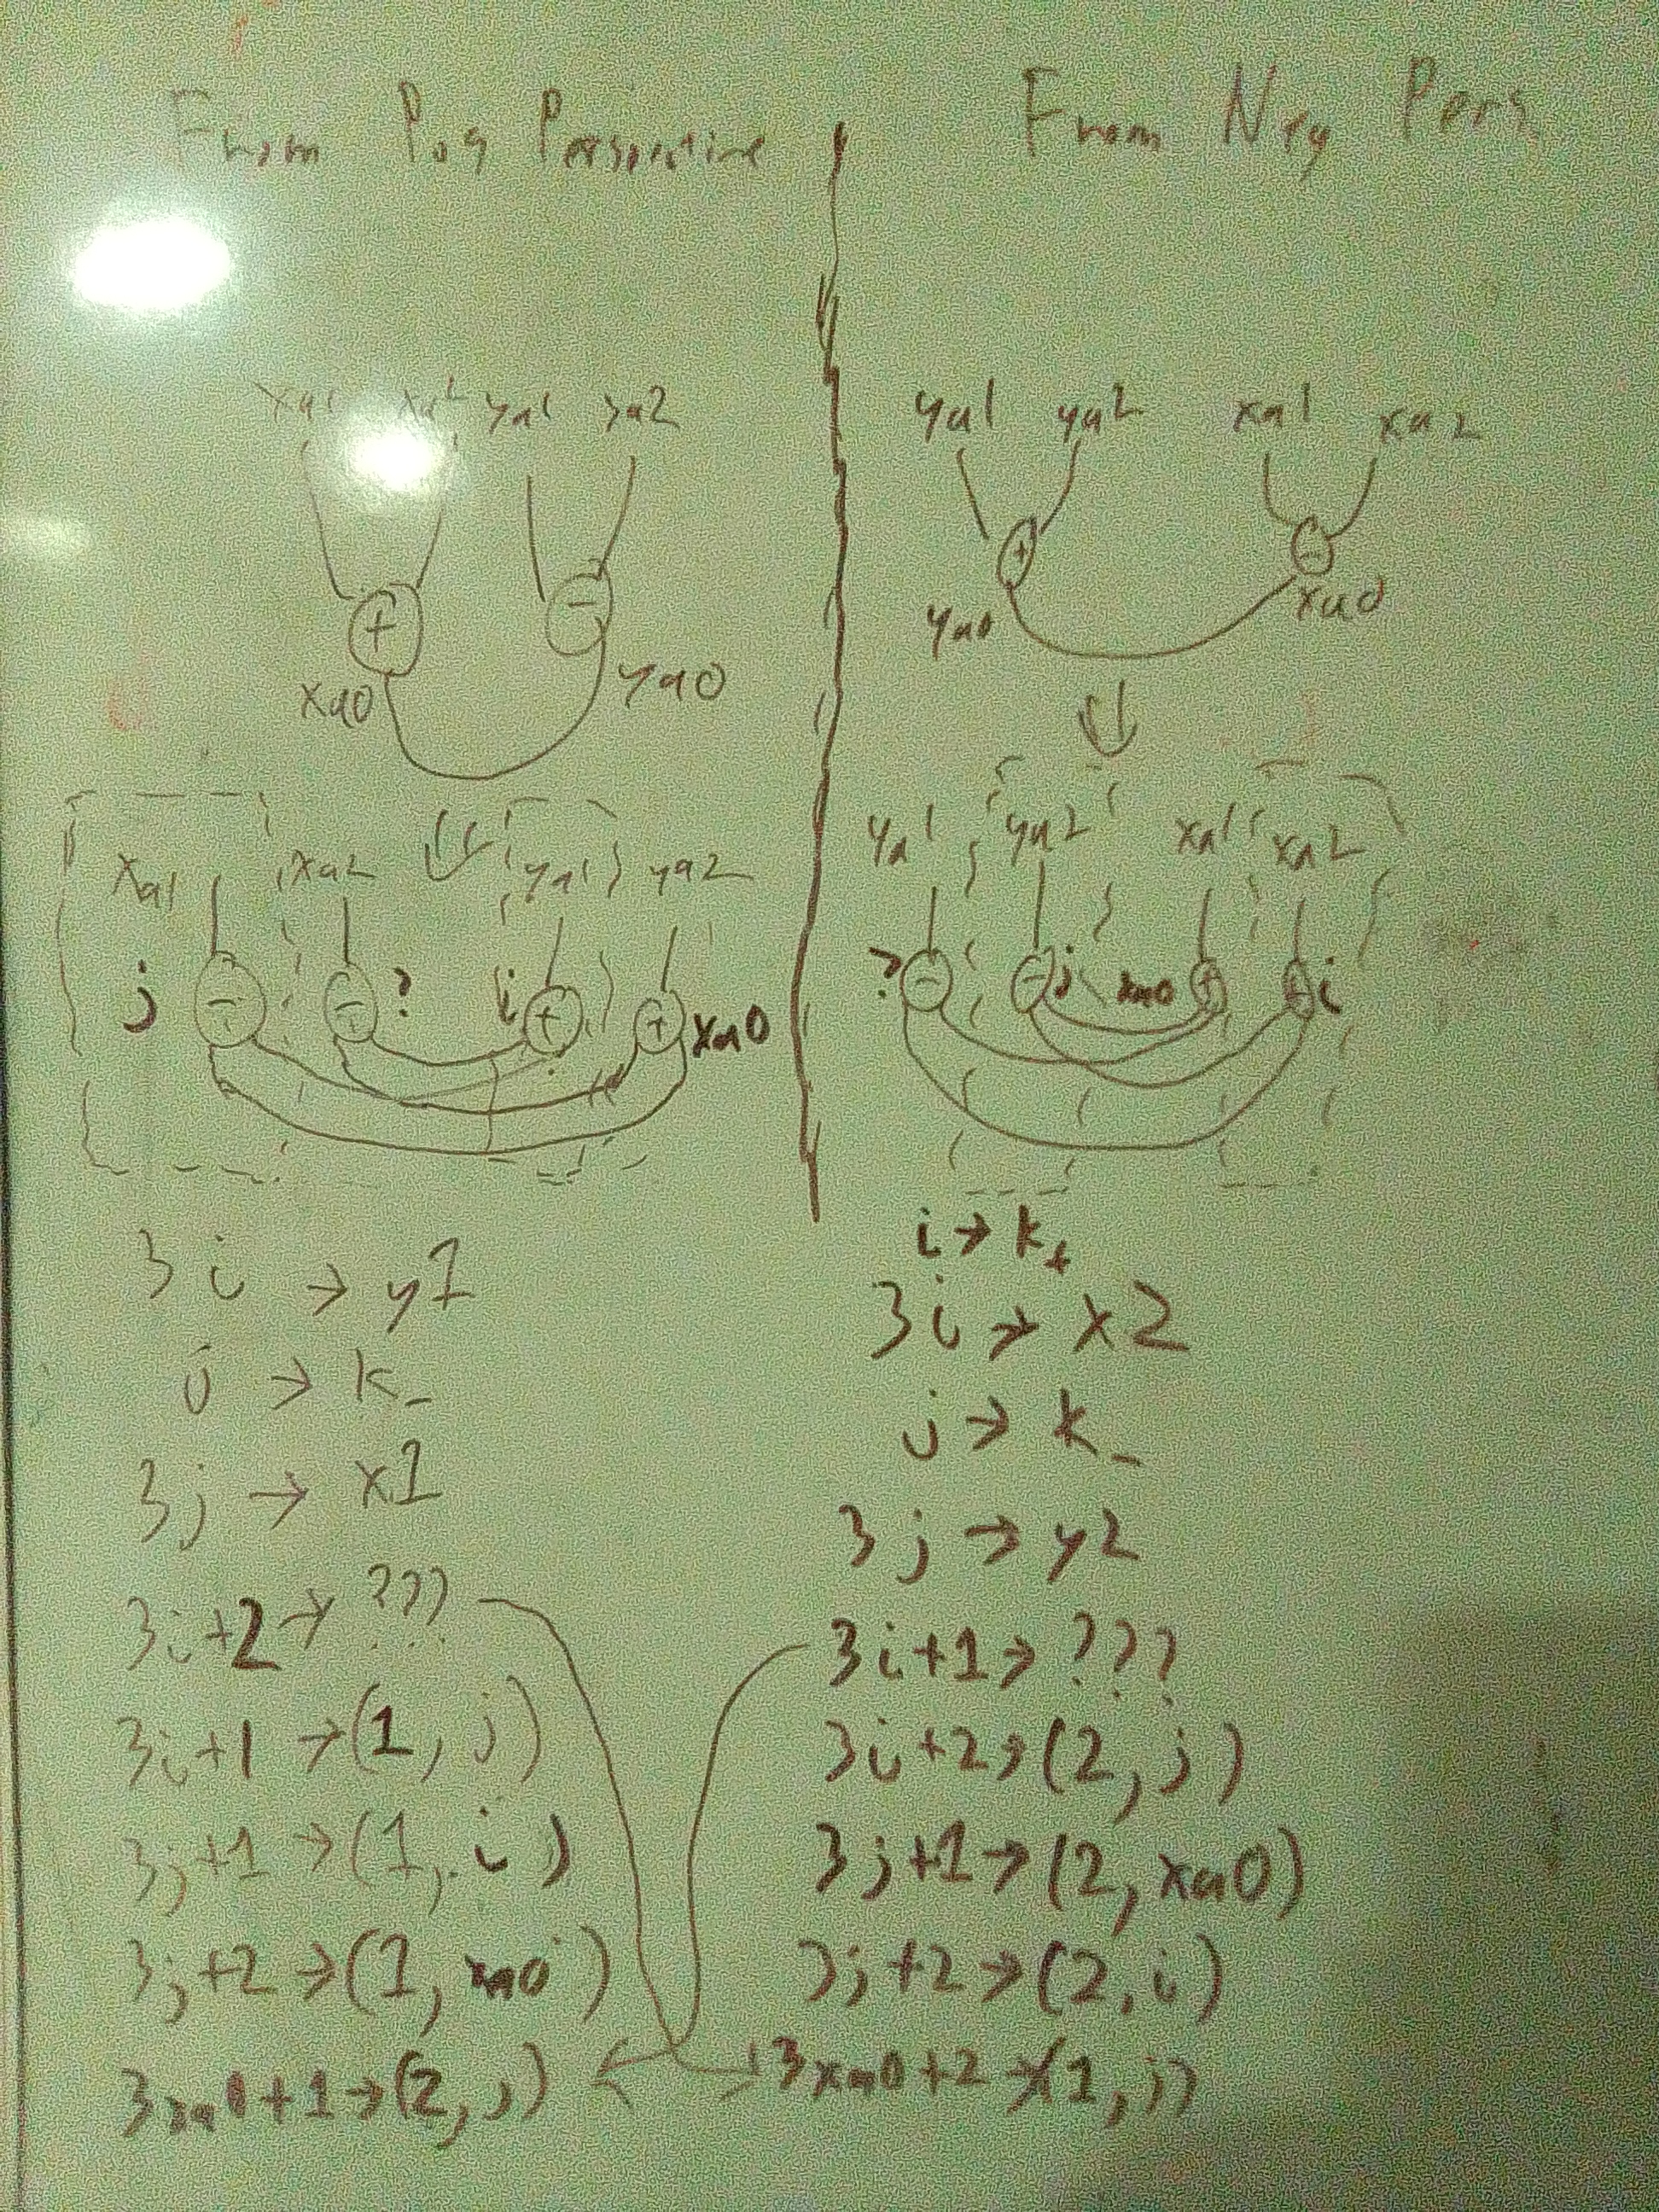 From Pos Perspective
xa1 xa2 ya1 ya2
+ -
xa0 ya0
xa1 xa2 ya1 ya2
j - - ? i + + xa0
3i → y1
j → k-
3j → x1
3i+2 → ???
3i+1 → (1, j)
3j+1 → (1, i)
3j+2 → (1, xa0)
3xa0+1 → (2, j)
From Neg Pers
ya1 ya2 xa1 xa2
+ -
ya0 xa0
ya1 ya2 xa1 xa2
? - - j xa0 + + i
i → k+
3i → x2
j → k-
3j → y2
3i+1 → ???
3i+2 → (2, j)
3j+1 → (2, xa0)
3j+2 → (2, i)
3xa0+2 → (1, j)